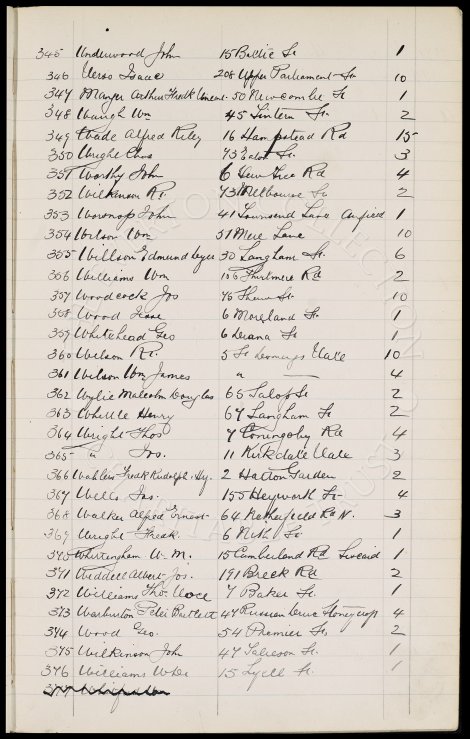 345 Underwood John 15 Baltic St 1
346 Veros Isaac 208 Upper Parliament St 10
347 Mayer Arthur Fredk Vincent 50 Newcombe St 1
348 Waugh Wm 45 Sintern St. 2
349 Wade Alfred Riley 16 Hampstead Rd 15
350 Wright Chas 73 Salop St. 3
351 Worthy John 6 Rd 4
352 Wilkinson Rt. 73 Melbourne St 2
353 Worsnop John 41 Townsend Lane Anfield 1
354 Wilson Wm 51 Mere Lane 10
355 Willson Edmund 30 Langham St. 6
356 Williams Wm 106 Thirlmere Rd 2
357 Woodcock Jos 75 St. 10
358 Wood Isaac 6 Moreland St 1
359 Whitehead Geo 6 Diana St 1
360 Wilson Rt. 5 St Vale 10
361 Wilson Wm James " —— 4
362 Wylie Malcolm Douglas 65 Salop St 2
363 Whittle Henry 67 Langham St 2
364 Wright Thos 7 Coningsby Rd 4
365 " Jos. 11 Kirkdale Vale 3
366 Wahlers Fredk Rudolph. Hy. 2 Hatton Garden 2
367 Wells Jas. 155 Heyworth St 4
368 Walker Alfred Ernest 64 Netherfield Rd N. 3
369 Wright Fredk. 6 St. 1
370 Whittingham W. M. 15 Cumberland Rd Liscard 1
371 Widdell Albert Jos. 191 Breck Rd 2
372 Williams Thos 7 Baker St. 1
373 Warburton Peter Bartlett 47 Russian Drive Stoneycroft 4
374 Wood Geo. 54 Premier St. 2
375 Wilkinson John 47 St. 1
376 Williams 15 Lyell St. 1
377